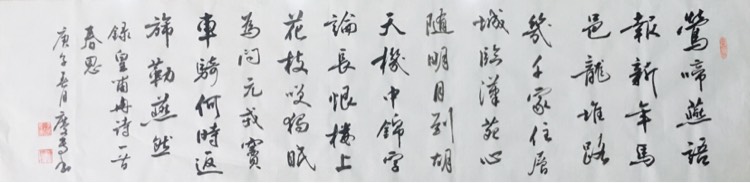 鶯啼燕語
報新年馬
邑龍堆路
幾千家住層
城臨漢苑心
隨明月到胡
天機中錦字
論長恨樓上
花枝咲獨眠
為問元戎竇
車騎何時返
旆勒燕然
錄皇甫冉詩一首
春思
庚 月 書